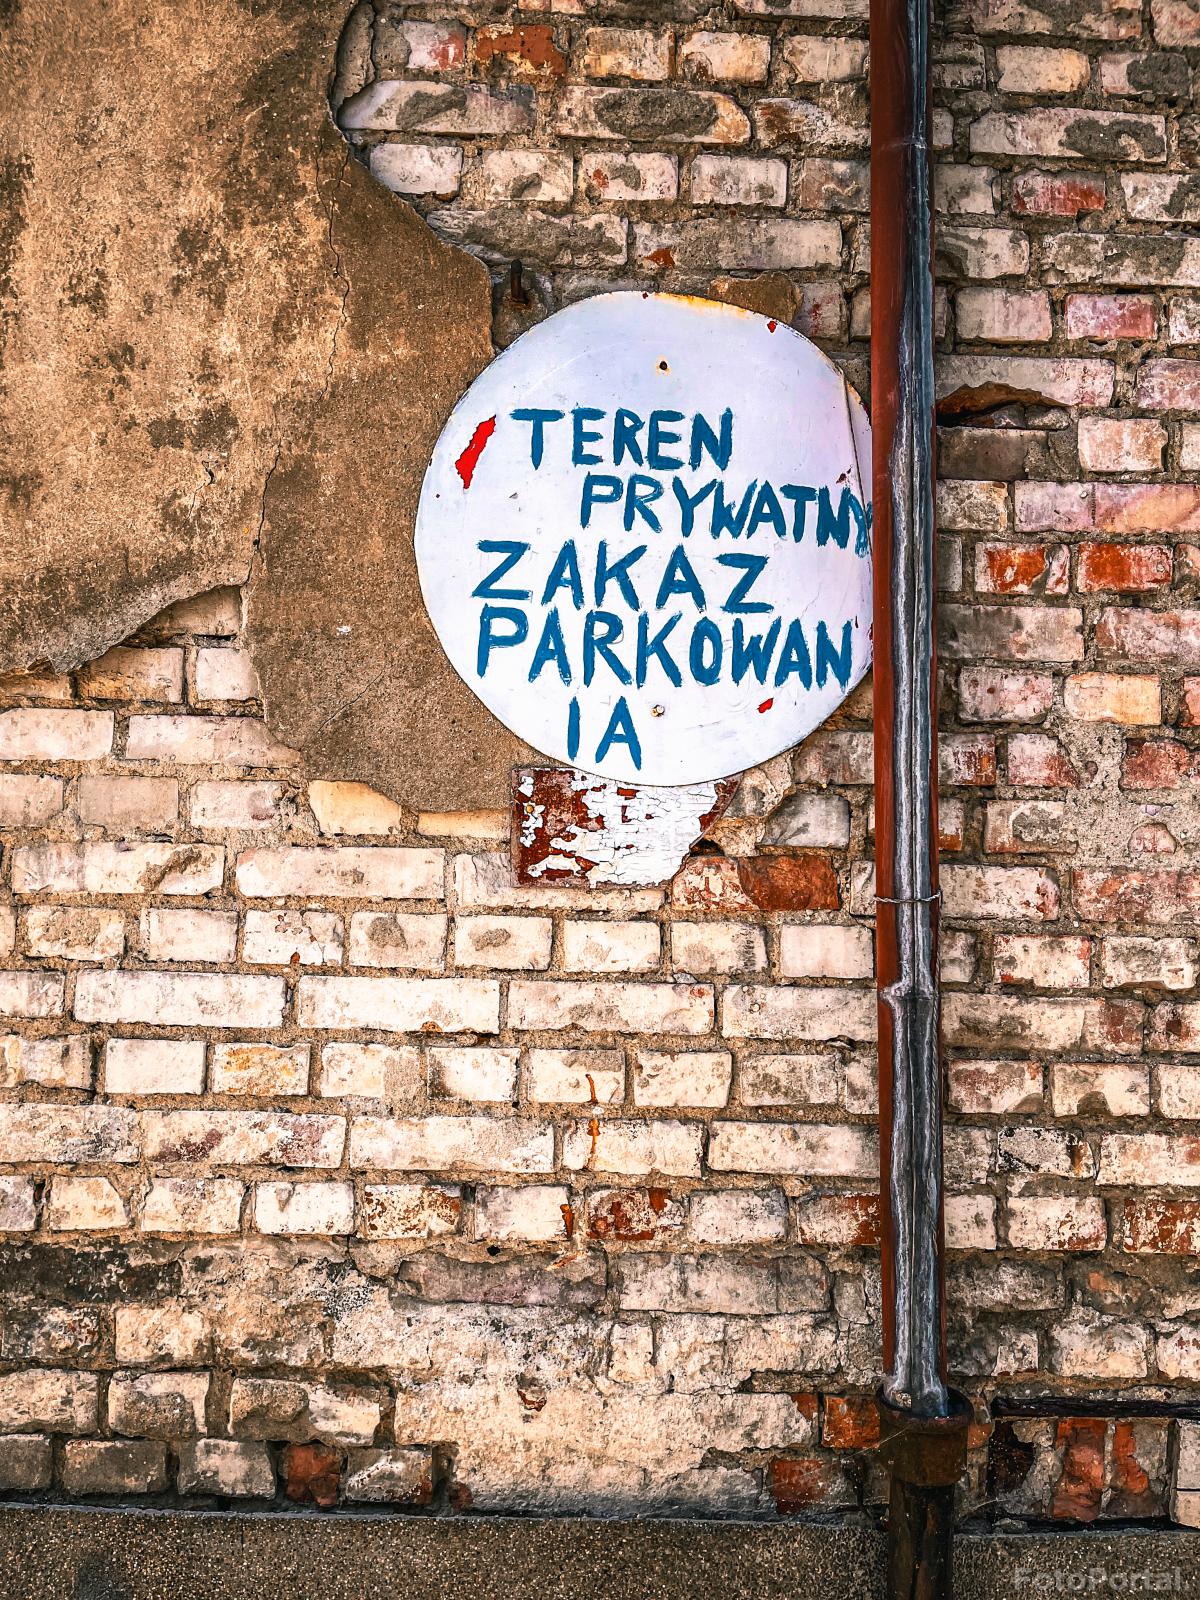 TEREN
PRYWATNY
ZAKAZ
PARKOWAN
IA
FotoPortal